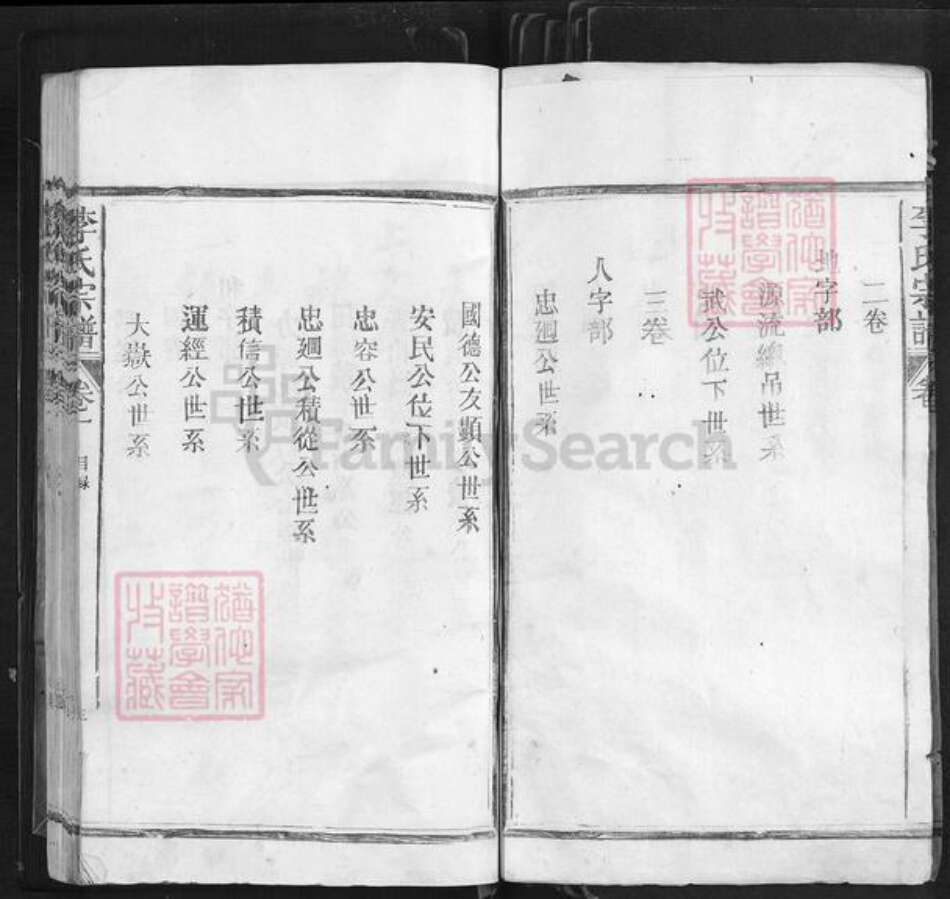 李氏宗譜
卷
二卷
地字部
源流總吊世系
武公位下世系
三卷
人字部
忠廻公世系
國德公友顯公世系
安民公位下世系
忠容公世系
忠廻公積從公世系
積信公世系
運經公世系
大嶽公世系
李氏宗譜
卷一
目錄
三
譜學會
收藏
譜學會
收藏
FamilySearch